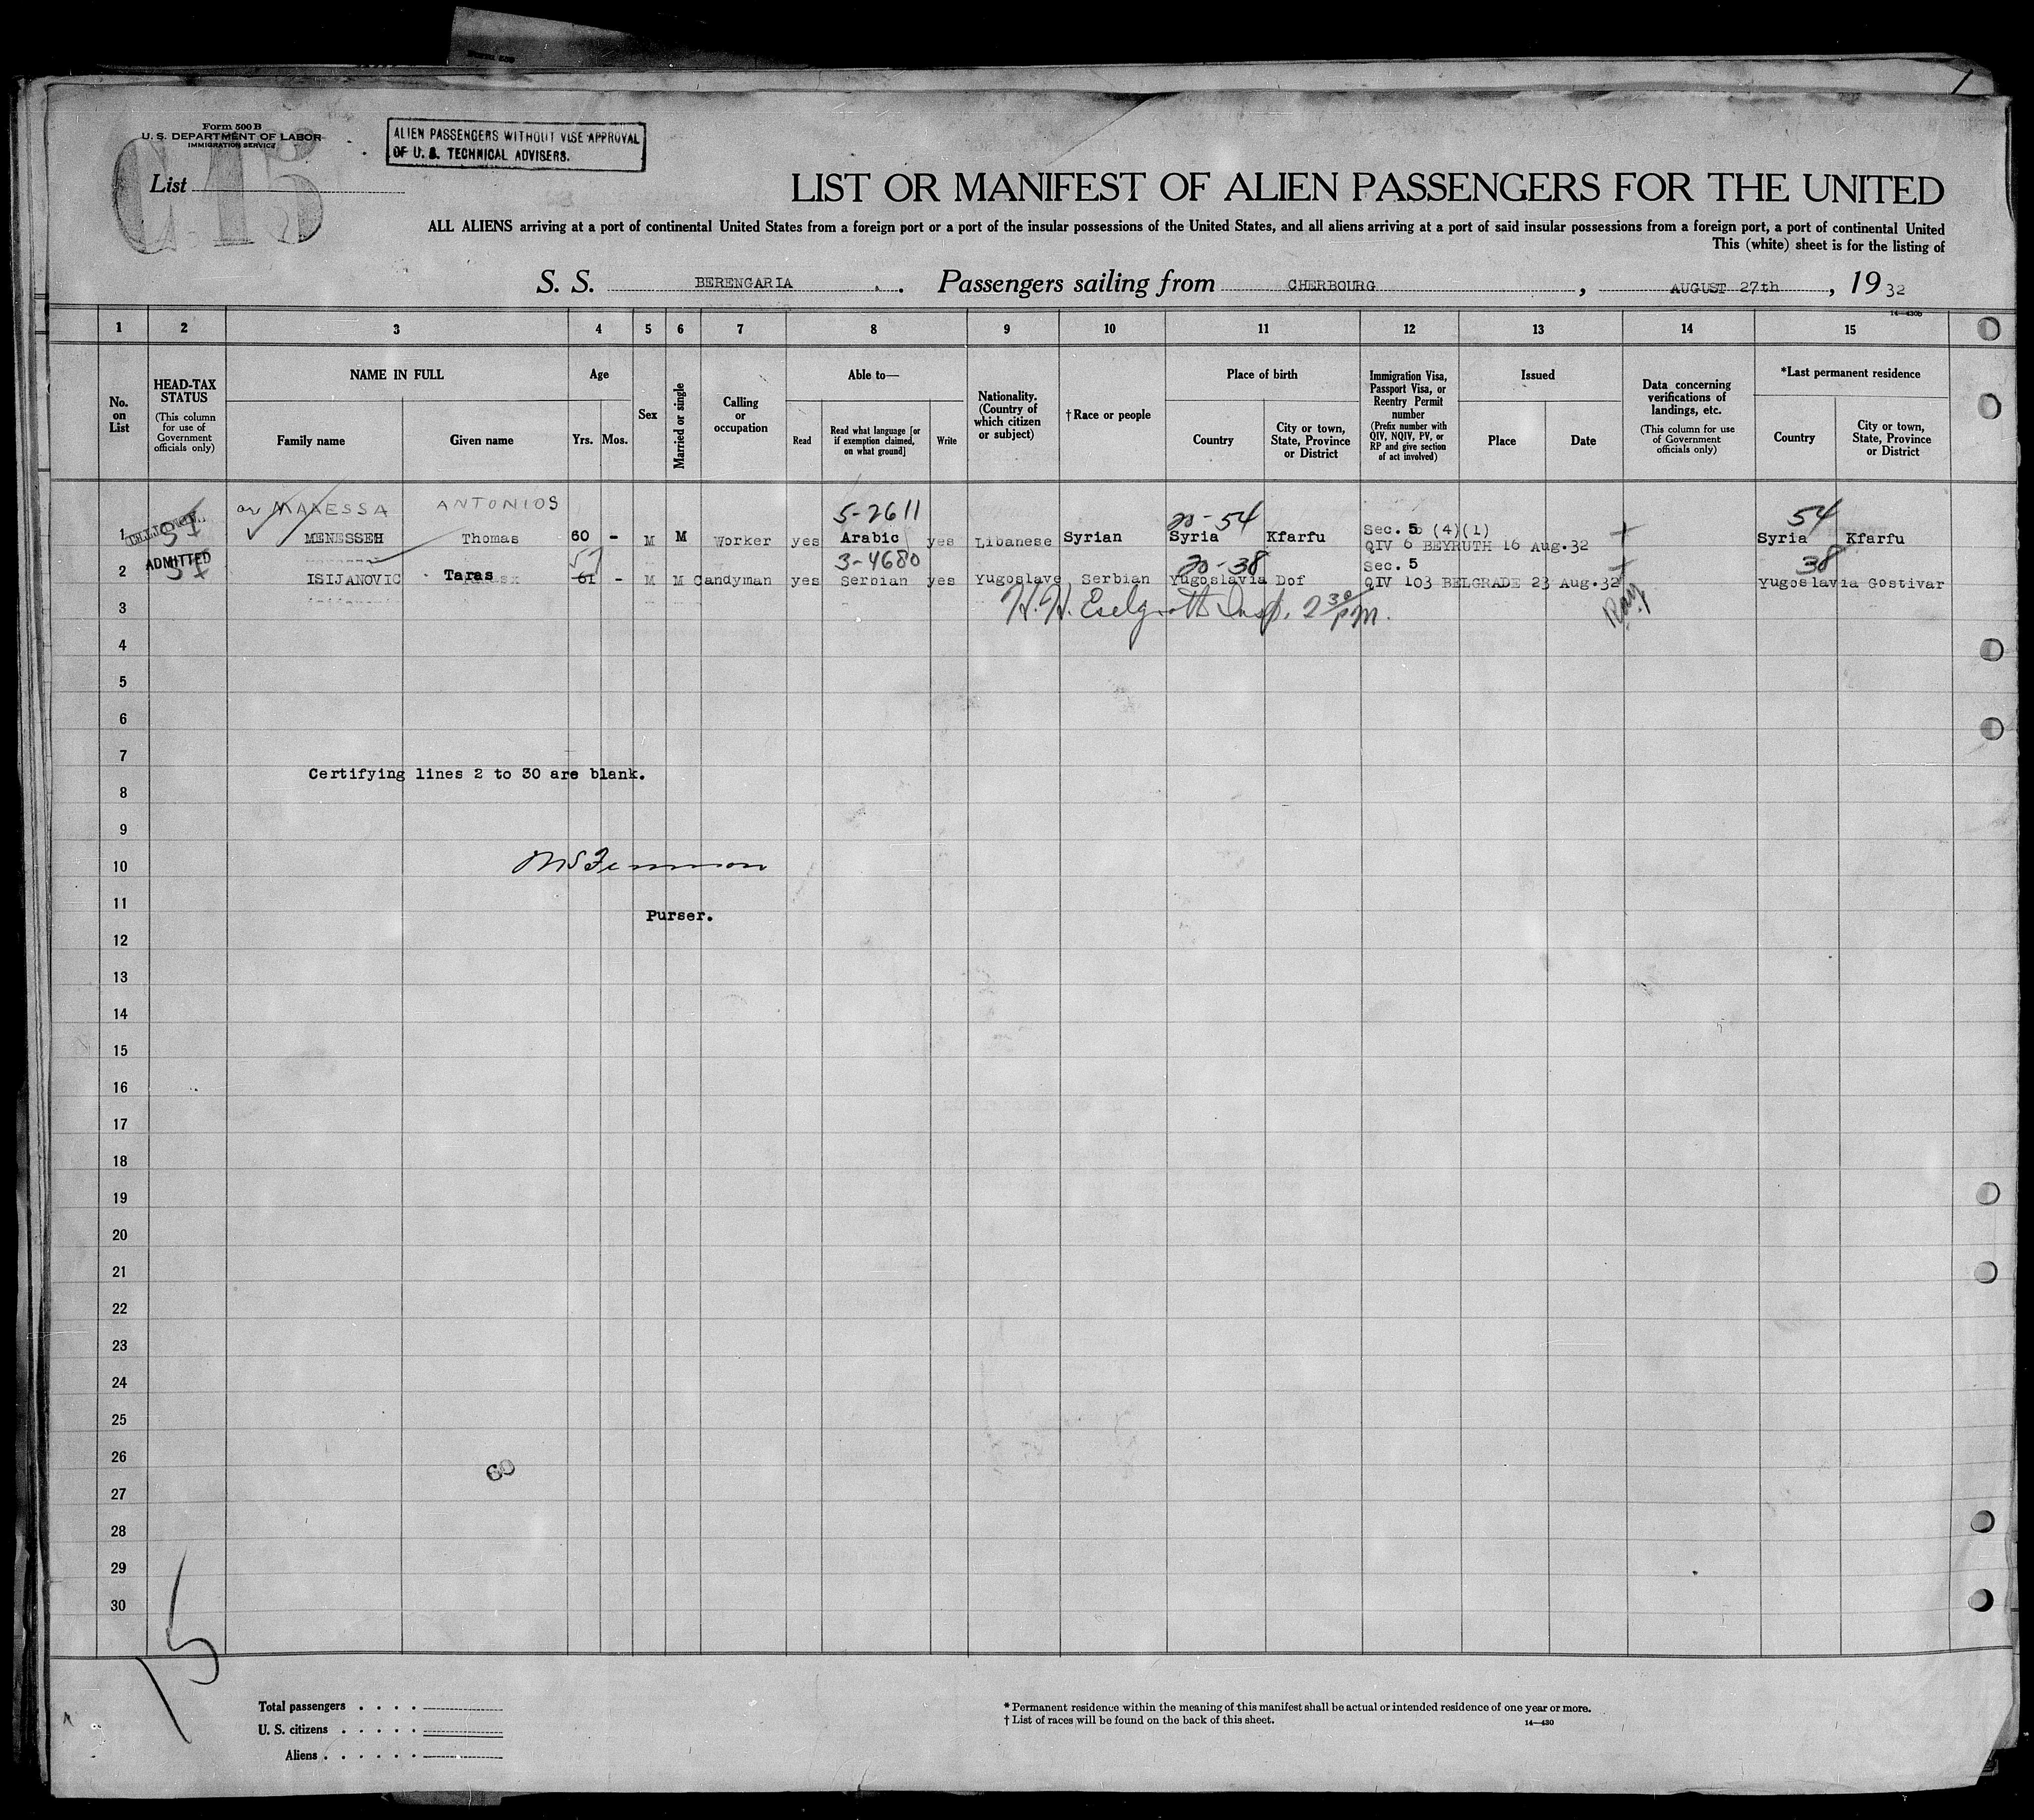 Form 500 B
U. S. DEPARTMENT OF LABOR
IMMIGRATION SERVICE
ALIEN PASSENGERS WITHOUT VISE APPROVAL
OF U. S. TECHNICAL ADVISERS.
List
LIST OR MANIFEST OF ALIEN PASSENGERS FOR THE UNITED
ALL ALIENS arriving at a port of continental United States from a foreign port or a port of the insular possessions of the United States, and all aliens arriving at a port of said insular possessions from a foreign port, a port of continental United
This (white) sheet is for the listing of
S. S. BERENGARIA. Passengers sailing from CHERBOURG, AUGUST 27th, 1932
14—430b
1 2 3 4 5 6 7 8 9 10 11 12 13 14 15
No. on List
HEAD-TAX STATUS
(This column for use of Government officials only)
NAME IN FULL
Family name
Given name
Age
Yrs. Mos.
Sex
Married or single
Calling or occupation
Able to—
Read
Read what language [or if exemption claimed, on what ground]
Write
Nationality. (Country of which citizen or subject)
†Race or people
Place of birth
Country
City or town, State, Province or District
Immigration Visa, Passport Visa, or Reentry Permit number
(Prefix number with QIV, NQIV, PV, or RP and give section of act involved)
Issued
Place
Date
Data concerning verifications of landings, etc.
(This column for use of Government officials only)
*Last permanent residence
Country
City or town, State, Province or District
or MANESSA ANTONIOS 5-2611 20-54 54
1 SI MENESSEH Thomas 60 - M M Worker yes Arabic yes Libanese Syrian Syria Kfarfu Sec. 5 (4)(1) QIV 6 BEYRUTH 16 Aug.32 Syria Kfarfu
ADMITTED 57 3-4680 20-38 38
2 SI ISIJANOVIC Taras 61 - M M Candyman yes Serbian yes Yugoslave Serbian Yugoslavia Dof Sec. 5 QIV 103 BELGRADE 23 Aug.32 Yugoslavia Gostivar
3 H. H. Insp. 2 30 PM.
4
5
6
7
Certifying lines 2 to 30 are blank.
8
9
10
11
Purser.
12
13
14
15
16
17
18
19
20
21
22
23
24
25
26
60
27
28
29
30
15
Total passengers . . . .
U. S. citizens . . . . .
Aliens . . . . . .
* Permanent residence within the meaning of this manifest shall be actual or intended residence of one year or more.
† List of races will be found on the back of this sheet.
14—430